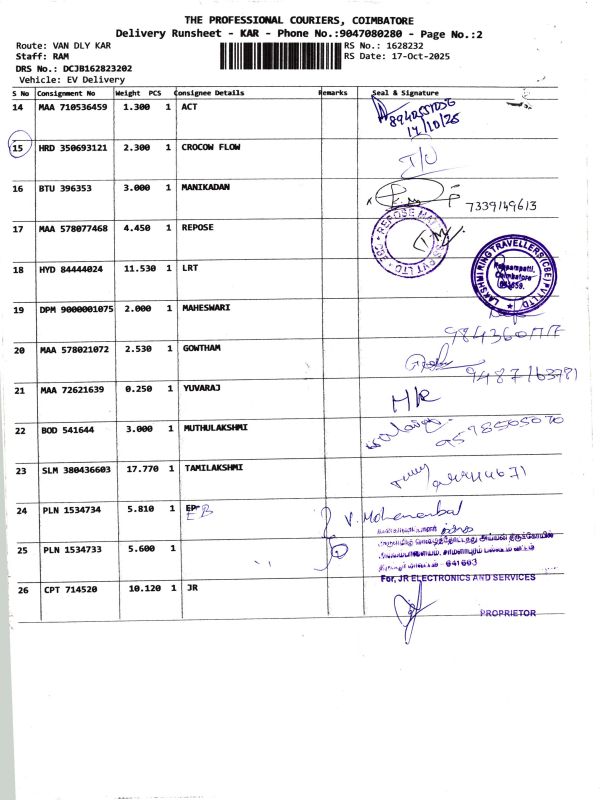 THE PROFESSIONAL COURIERS, COIMBATORE
Delivery Runsheet - KAR - Phone No.:9047080280 - Page No.:2
Route: VAN DLY KAR RS No.: 1628232
Staff: RAM RS Date: 17-Oct-2025
DRS No.: DCJB162823202
Vehicle: EV Delivery
S No Consignment No Weight PCS Consignee Details Remarks Seal & Signature
14 MAA 710536459 1.300 1 ACT
15 HRD 350693121 2.300 1 CROCOW FLOW
16 BTU 396353 3.000 1 MANIKADAN 7339149613
17 MAA 578077468 4.450 1 REPOSE
18 HYD 84444024 11.530 1 LRT
LAKSHMI RING TRAVELLERS (CBE) PVT LTD
Coimbatore
19 DPM 9000001075 2.000 1 MAHESWARI
20 MAA 578021072 2.530 1 GOWTHAM
21 MAA 72621639 0.250 1 YUVARAJ
22 BOD 541644 3.000 1 MUTHULAKSHMI
23 SLM 380436603 17.770 1 TAMILAKSHMI
24 PLN 1534734 5.810 1 EB
V. Mohanambal
25 PLN 1534733 5.600 1
641603
26 CPT 714520 10.120 1 JR
For, JR ELECTRONICS AND SERVICES
PROPRIETOR